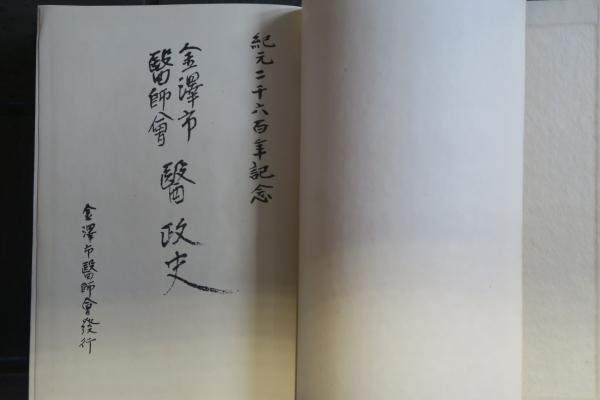 紀元二千六百年記念
金澤市
醫師會
醫政史
金澤市醫師會發行